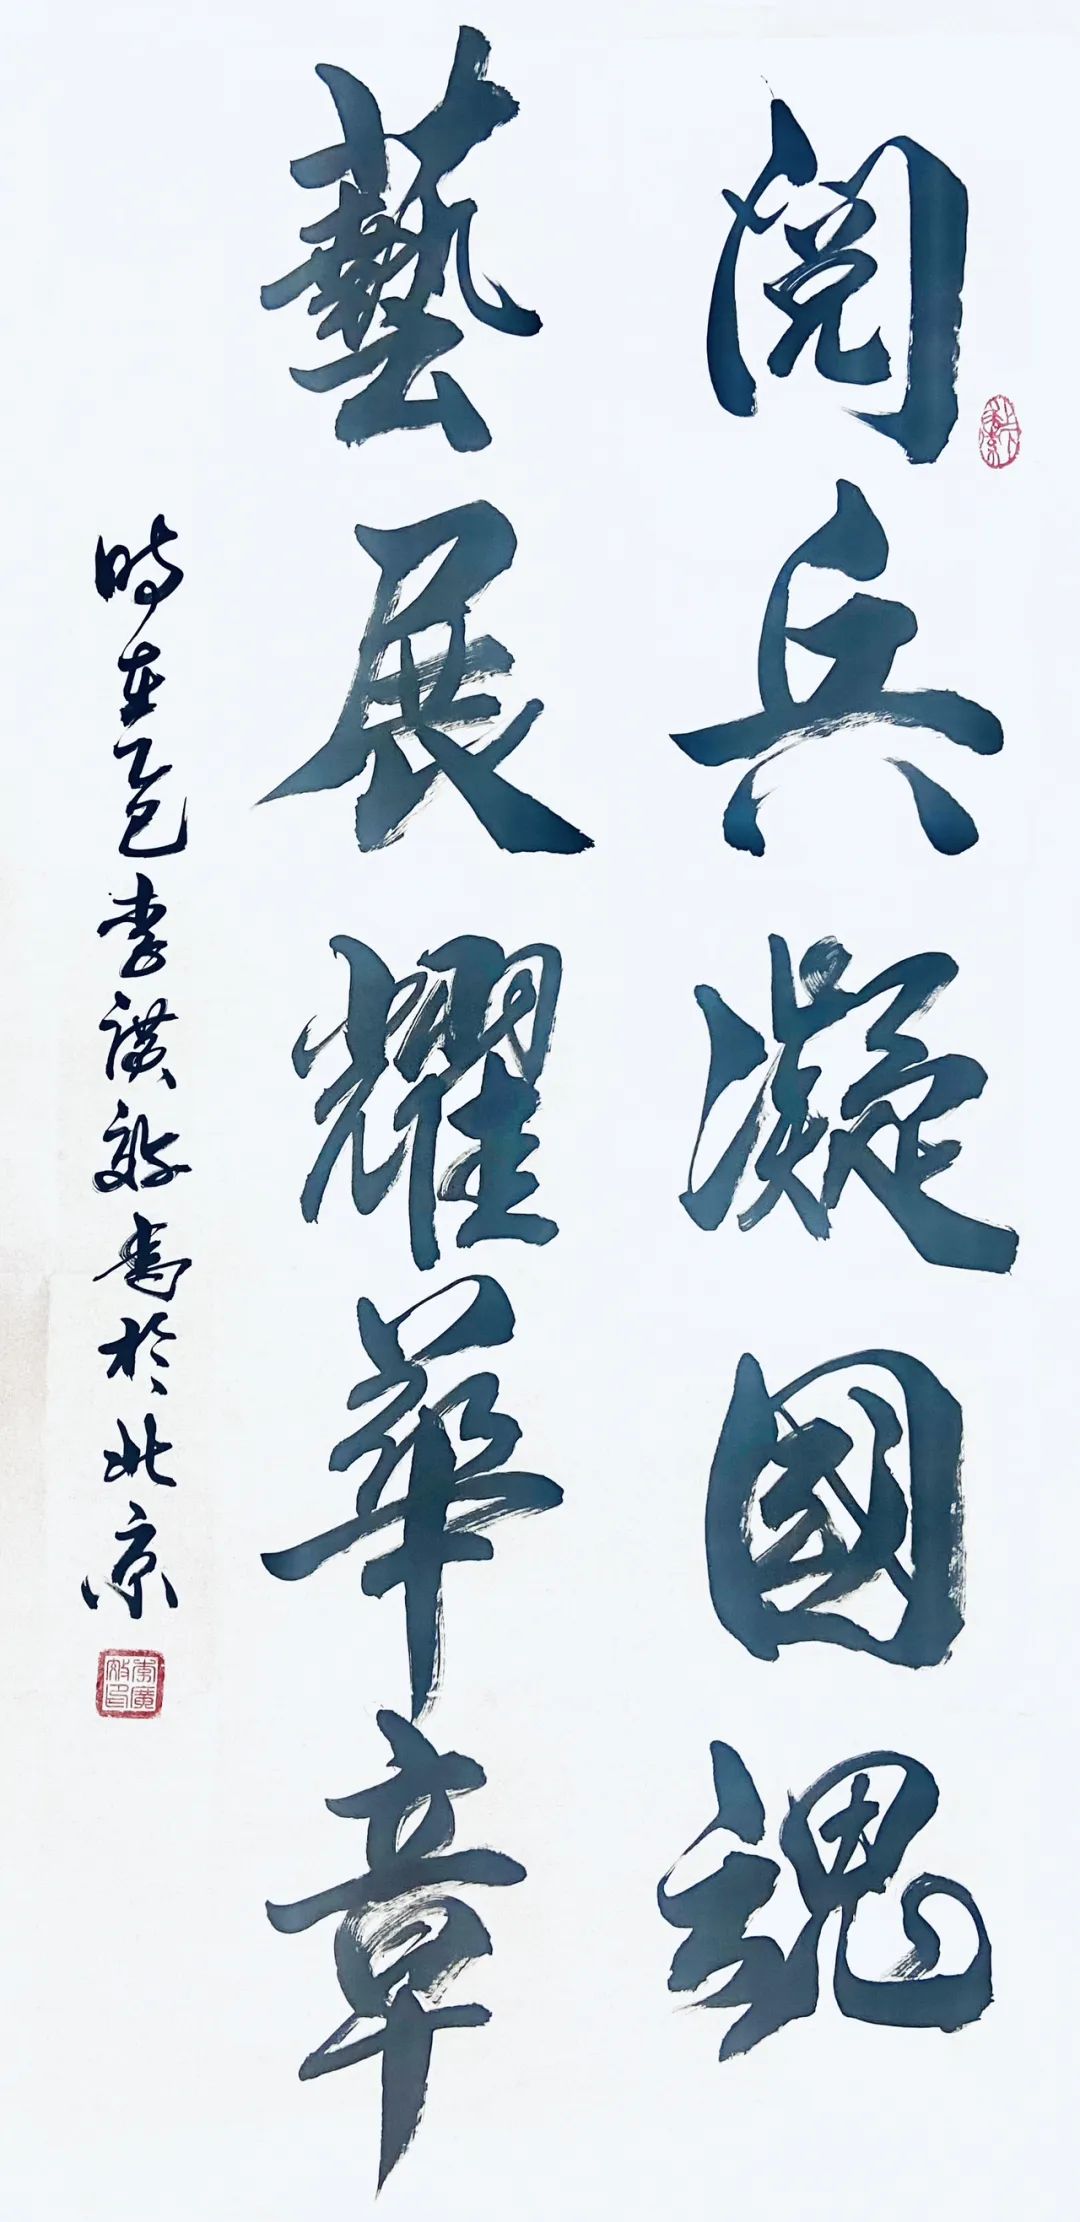 閱兵凝國魂
藝展耀華章
時在乙巳李書於北京